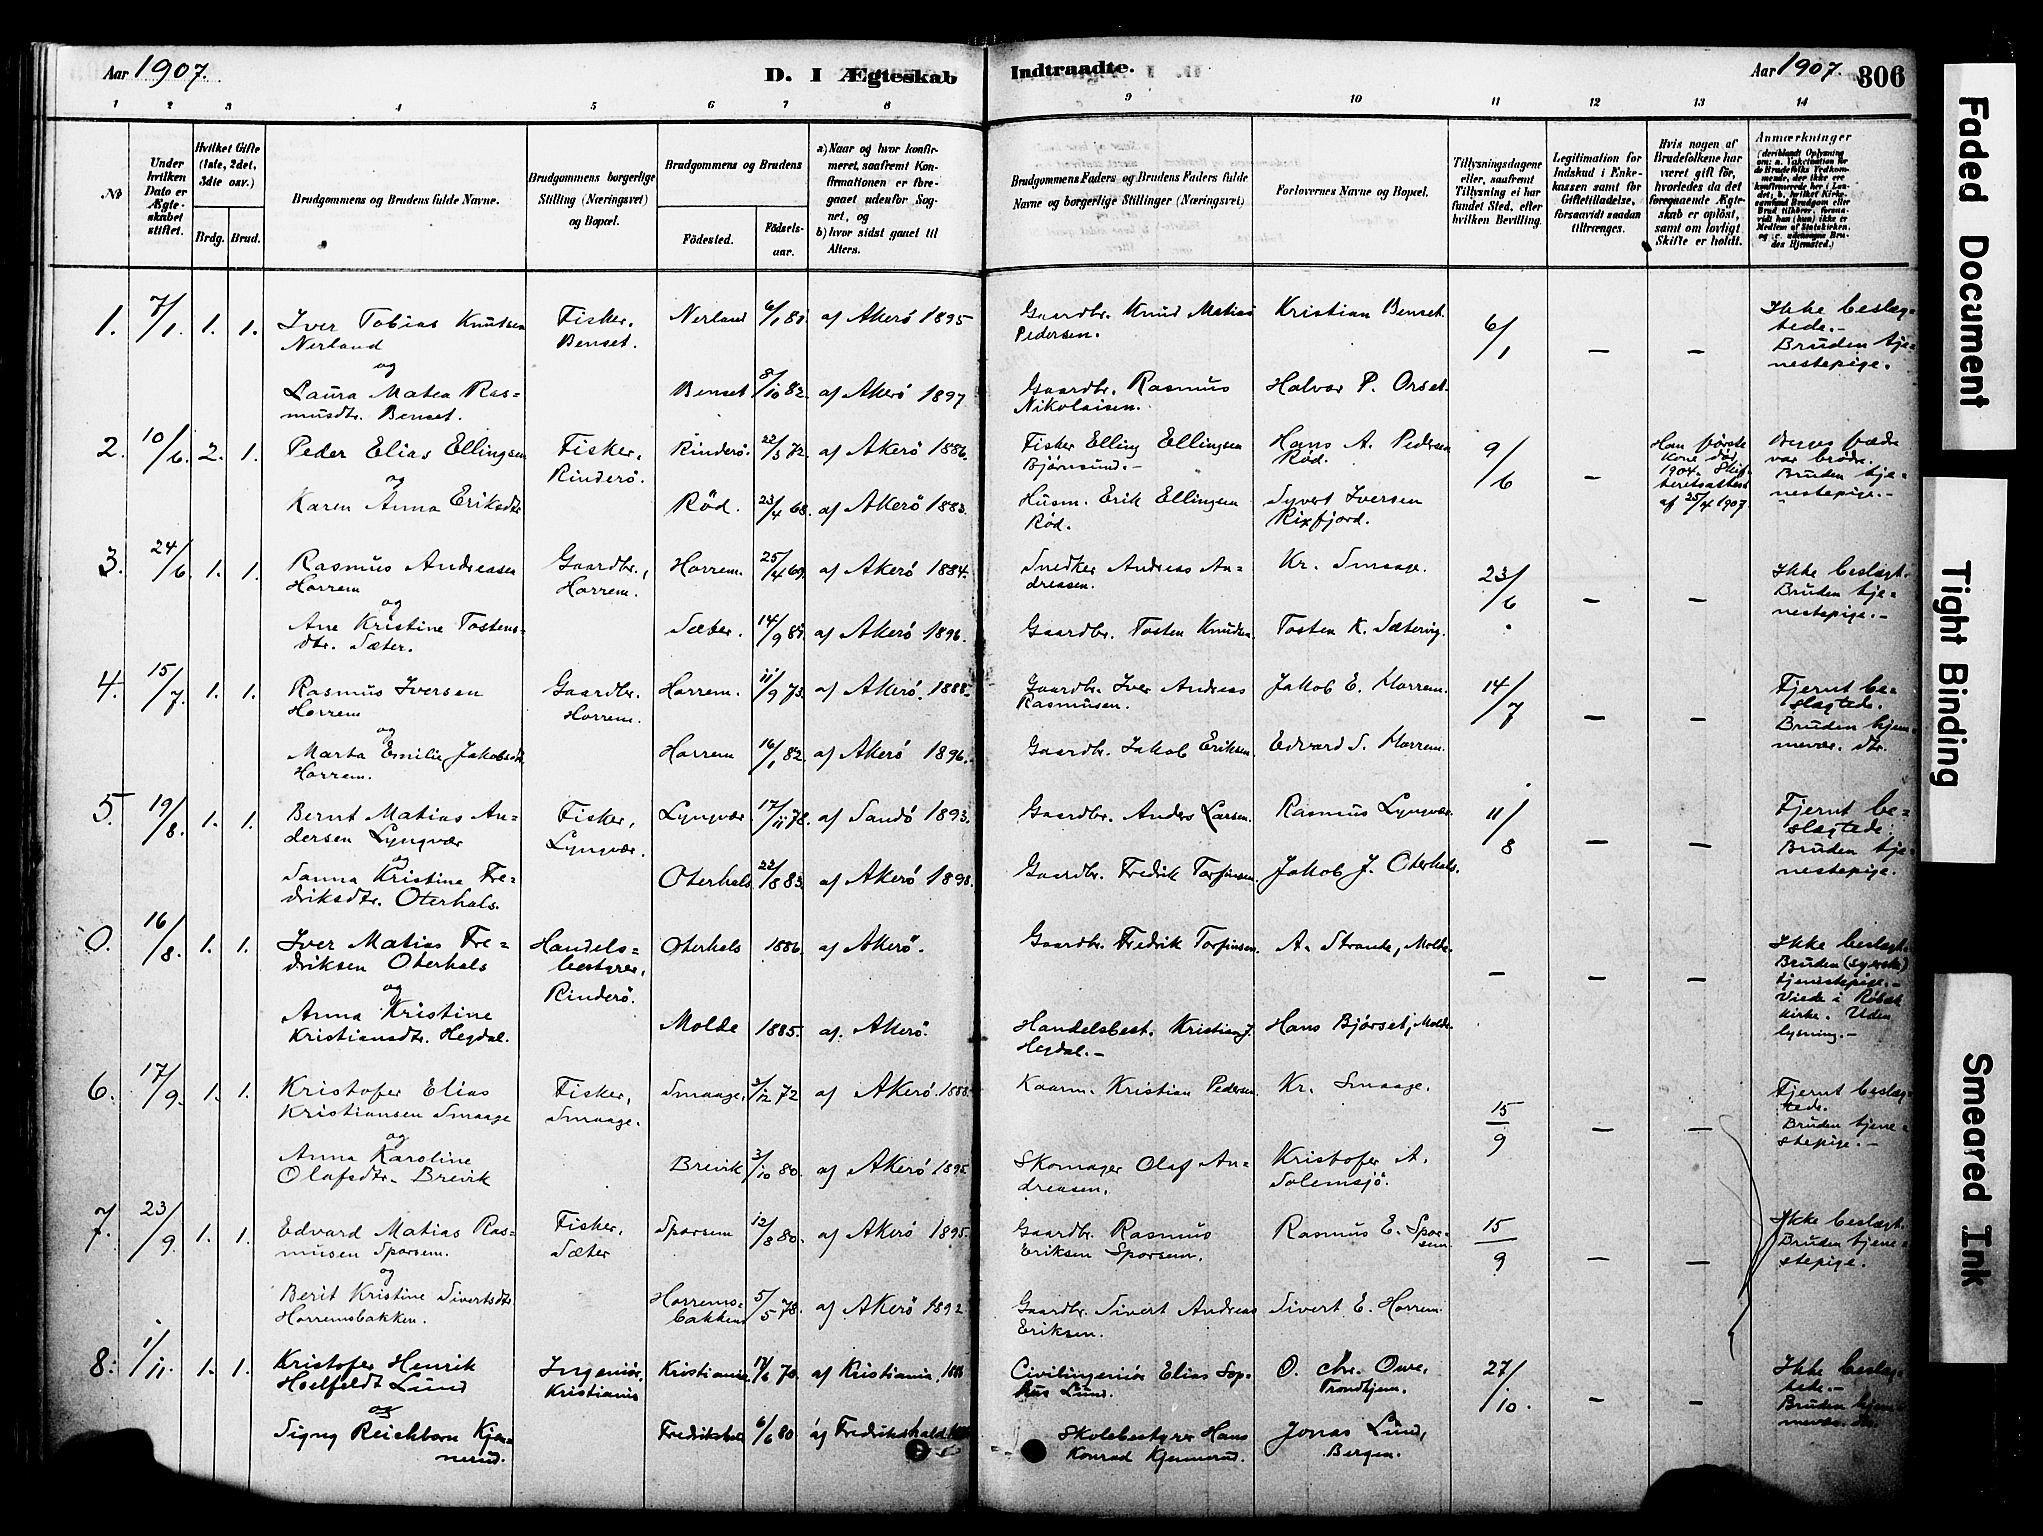 Aar 1907.
D. I Ægteskab
Indtraadte.
Aar 1907.
306
1 2 3 4 5 6 7 8 9 10 11 12 13 14
No
Under hvilken Dato er Ægteskabet stiftet.
Hvilket Gifte (1ste, 2det, 3die osv.)
Brdg. Brud.
Brudgommens og Brudens fulde Navne.
Brudgommens borgerlige Stilling (Næringsvei) og Bopæl.
Brudgommens og Brudens
Fødested.
Fødsels-aar.
a) Naar og hvor konfirmeret, saafremt Konfirmationen er foregaaet udenfor Sognet, og
b) hvor sidst gaaet til Alters.
Brudgommens Faders og Brudens Faders fulde Navne og borgerlige Stillinger (Næringsvei)
Forlovernes Navne og Bopæl.
Tillysningsdagene eller, saafremt Tillysning ei har fundet Sted, efter hvilken Bevilling.
Legitimation for Indskud i Enkekassen samt for Giftetilladelse, forsaavidt saadan tiltrænges.
Hvis nogen af Brudefolkene har været gift før, hvorledes da det foregaaende Ægteskab er opløst, samt om lovligt Skifte er holdt.
Anmærkninger
1. 7/1. 1. 1. Iver Tobias Knutsen Nerland
Fisker, Benset.
Nerland 6/1 81. af Akerø 1895
Gaardbr. Knud Matias Pedersen.
Kristian Benset.
6/1 — —
Ikke beslægtede.- Bruden tjenestepige.
og
Laura Matea Rasmusdtr. Benset.
Benset 8/10 82. af Akerø 1897
Gaardbr. Rasmus Nikolaisen.
Halvor P. Orset.
2. 10/6. 2. 1. Peder Elias Ellingsen
Fisker, Rinderø.
Rinderø. 22/3 72. af Akerø 1886.
Fisker Elling Ellingsen Bjørnsund.-
Hans A. Pedersen Rød.
9/6 —
Han første kone død 1904. af 25/4 1907.
var brødre. Bruden tjenestepige.-
og
Karen Anna Eriksdtr.
Rød. 23/4 68. af Akerø 1883.
Husm. Erik Ellingsen Rød.
Syvert Iversen Rixfjord.
3. 24/6. 1. 1. Rasmus Andreasen Horrem
Gaardbr., Horrem.
Horrem. 25/4 69. af Akerø 1884.
Snedker Andreas Andreasen.
Kr. Smaage.
23/6 — —
Ikke beslægt. Bruden tjenestepige.-
og
Ane Kristine Tostensdtr. Sæter.
Sæter. 14/9 81. af Akerø 1896.
Gaardbr. Tosten Knudsn.
Tosten K. Sætering.
4. 15/7. 1. 1. Rasmus Iversen Horrem
Gaardbr. Horrem.
Horrem. 11/9 73. af Akerø. 1888.
Gaardbr. Iver Andreas Rasmusen.
Jakob E. Horrem.
14/7 — —
Fjernt beslægtede. Bruden hjemmevær. dtr.
og
Marta Emilie Jakobsdtr. Horrem.
Horrem 16/1 82. af Akerø 1896.
Gaardbr. Jakob Eriksen.
Edvard S. Horrem.
5. 19/8. 1. 1. Bernt Matias Andersen Lyngvær
Fisker, Lyngvær.
Lyngvær. 17/11 78. af Sandø 1893.
Gaardbr. Anders Larsen.
Rasmus Lyngvær.
11/8 — —
Fjernt beslægtede. Bruden tjenestepige.
og
Sanna Kristine Fredriksdtr. Oterhals.
Oterhals 22/8 83. af Akerø 1898.
Gaardbr. Fredrik Torfinsen.
Jakob J. Oterhals.
0. 16/8. 1. 1. Iver Matias Fredriksen Oterhals
Handelsbestyrer, Rinderø.
Oterhals 1886. af Akerø.
Gaardbr. Fredrik Torfinsen.
A. Strande, Molde.
— — —
Ikke beslægt. Bruden (syerske) tjenestepige.- Viede i Røbæk kirke. Uden lysning.-
og
Anna Kristine Kristiansdtr. Hegdal.
Molde 1885. af. Akerø.
Handelsbest. Kristian J. Hegdal.-
Hans Bjørset, Molde.
6. 17/9. 1. 1. Kristofer Elias Kristiansen Smaage
Fisker, Smaage.
Smaage. 3/12 72 af Akerø. 1888.
Kaarm. Kristian Pedersen.
Kr. Smaage.
15/9 — —
Fjernt beslægtede. Bruden tjenestepige.-
og
Anna Karoline Olafsdtr. Breivik
Breivik 3/10 80. af Akerø 1895
Skomager Olaf Andreasen.
Kristofer A. Solemsjø.
7. 23/9. 1. 1. Edvard Matias Rasmusen Sporsem.
Fisker, Sæter
Sporsem 12/8 80. af Akerø 1895.
Gaardbr. Rasmus Eriksen Sporsem.
Rasmus E. Sporsem
15/9 — —
Ikke beslægt. Bruden tjenestepige.
og
Berit Kristine Sivertsdtr. Horremsbakken.
Horremsbakken 5/5 78. af Akerø 1892.
Gaardbr. Sivert Andreas Eriksen.
Sivert E. Horrem.
8. 1/11. 1. 1. Kristofer Henrik Hoelfeldt Lund
Ingeniør, Kristiania
Kristiania 17/6 70. af Kristiania,
Civilingeniør Elias Sophus Lund.
O. Chr. Owe, Trondhjem.
27/10. — —
Ikke beslægtede.- Bruden hjemmevær. dtr.
og
Signy Reichborn Kjennerud.
Fredrikshald 6/6 80 af Fredrikshald
Skolebestyrer Hans Konrad Kjennerud.
Jonas Lund, Bergen.
Faded Document
Tight Binding
Smeared Ink